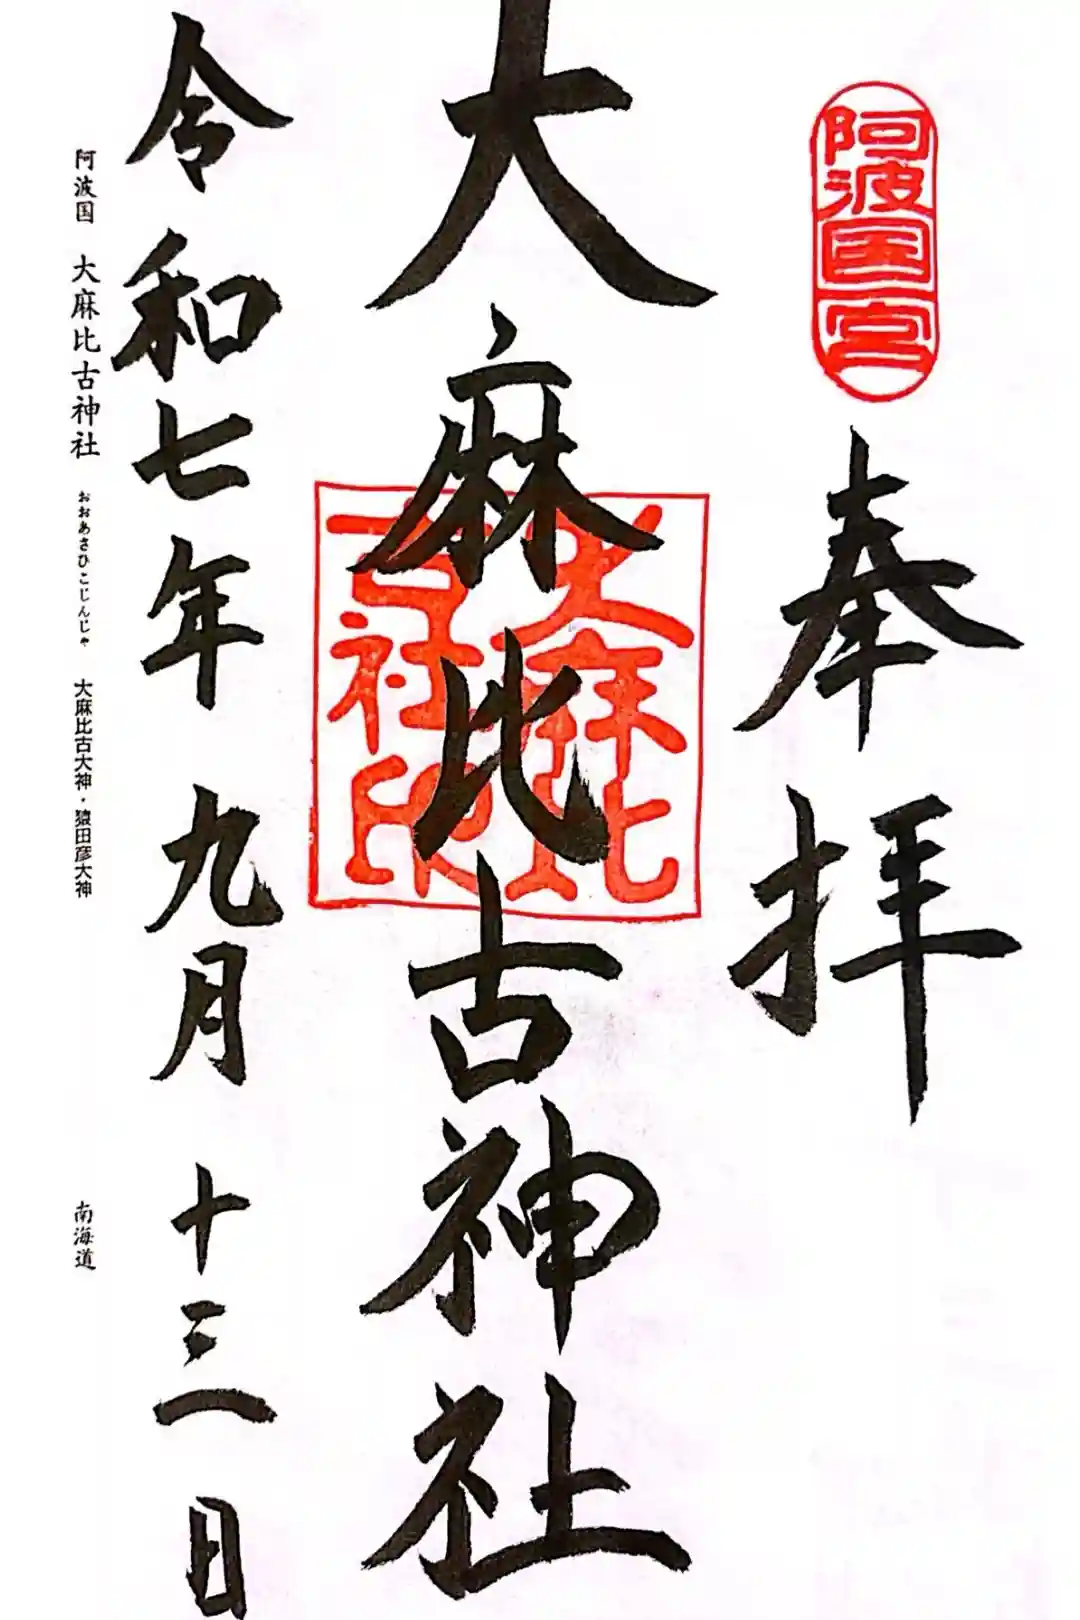 阿波国一宮
奉拝
大麻比古神社
大麻比
古社印
令和七年 九月 十三日
阿波国 大麻比古神社 おおあさひこじんじゃ 大麻比古大神・猿田彦大神 南海道